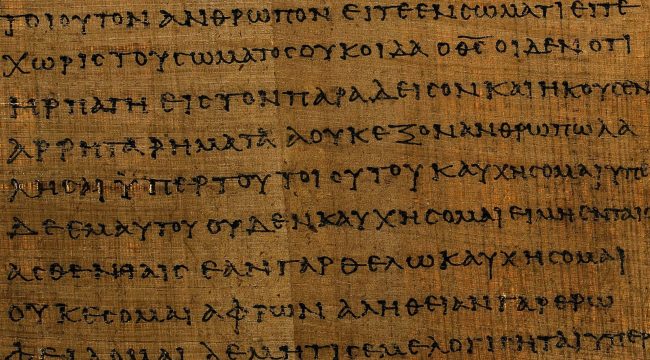 ΤΟΙΟΥΤΟΝ ΑΝΘΡΩΠΟΝ ΕΙΤΕ ΕΝ ΣΩΜΑΤΙ ΕΙΤΕ
ΧΩΡΙϹ ΤΟΥ ϹΩΜΑΤΟϹ ΟΥΚ ΟΙΔΑ Ο ΘϹ ΟΙΔΕΝ ΟΤΙ
ΗΡΠΑΓΗ ΕΙϹ ΤΟΝ ΠΑΡΑΔΕΙϹΟΝ ΚΑΙ ΗΚΟΥϹΕΝ
ΑΡΡΗΤΑ ΡΗΜΑΤΑ Α ΟΥΚ ΕΞΟΝ ΑΝΘΡΩΠΩ ΛΑ
ΛΗϹΑΙ ΫΠΕΡ ΤΟΥ ΤΟΙΟΥΤΟΥ ΚΑΥΧΗϹΟΜΑΙ ΥΠΕ
ΔΕ ΕΜΑΥΤΟΥ ΟΥΔΕΝ ΚΑΥΧΗϹΟΜΑΙ ΕΙ ΜΗ ΕΝ ΤΑΙϹ
ΑϹΘΕΝΗΑΙϹ ΕΑΝ ΓΑΡ ΘΕΛΩ ΚΑΥΧΗϹΟΜΑΙ
ΟΥΚ ΕϹΟΜΑΙ ΑΦΡΩΝ ΑΛΗΘΕΙΑΝ ΓΑΡ ΕΡΩ
ΦΕΙΔΟΜΑΙ ΔΕ ΜΗ ΤΙϹ ΕΜΕ ΛΟΓΙϹΗΤΑΙ ΥΠΕΡ